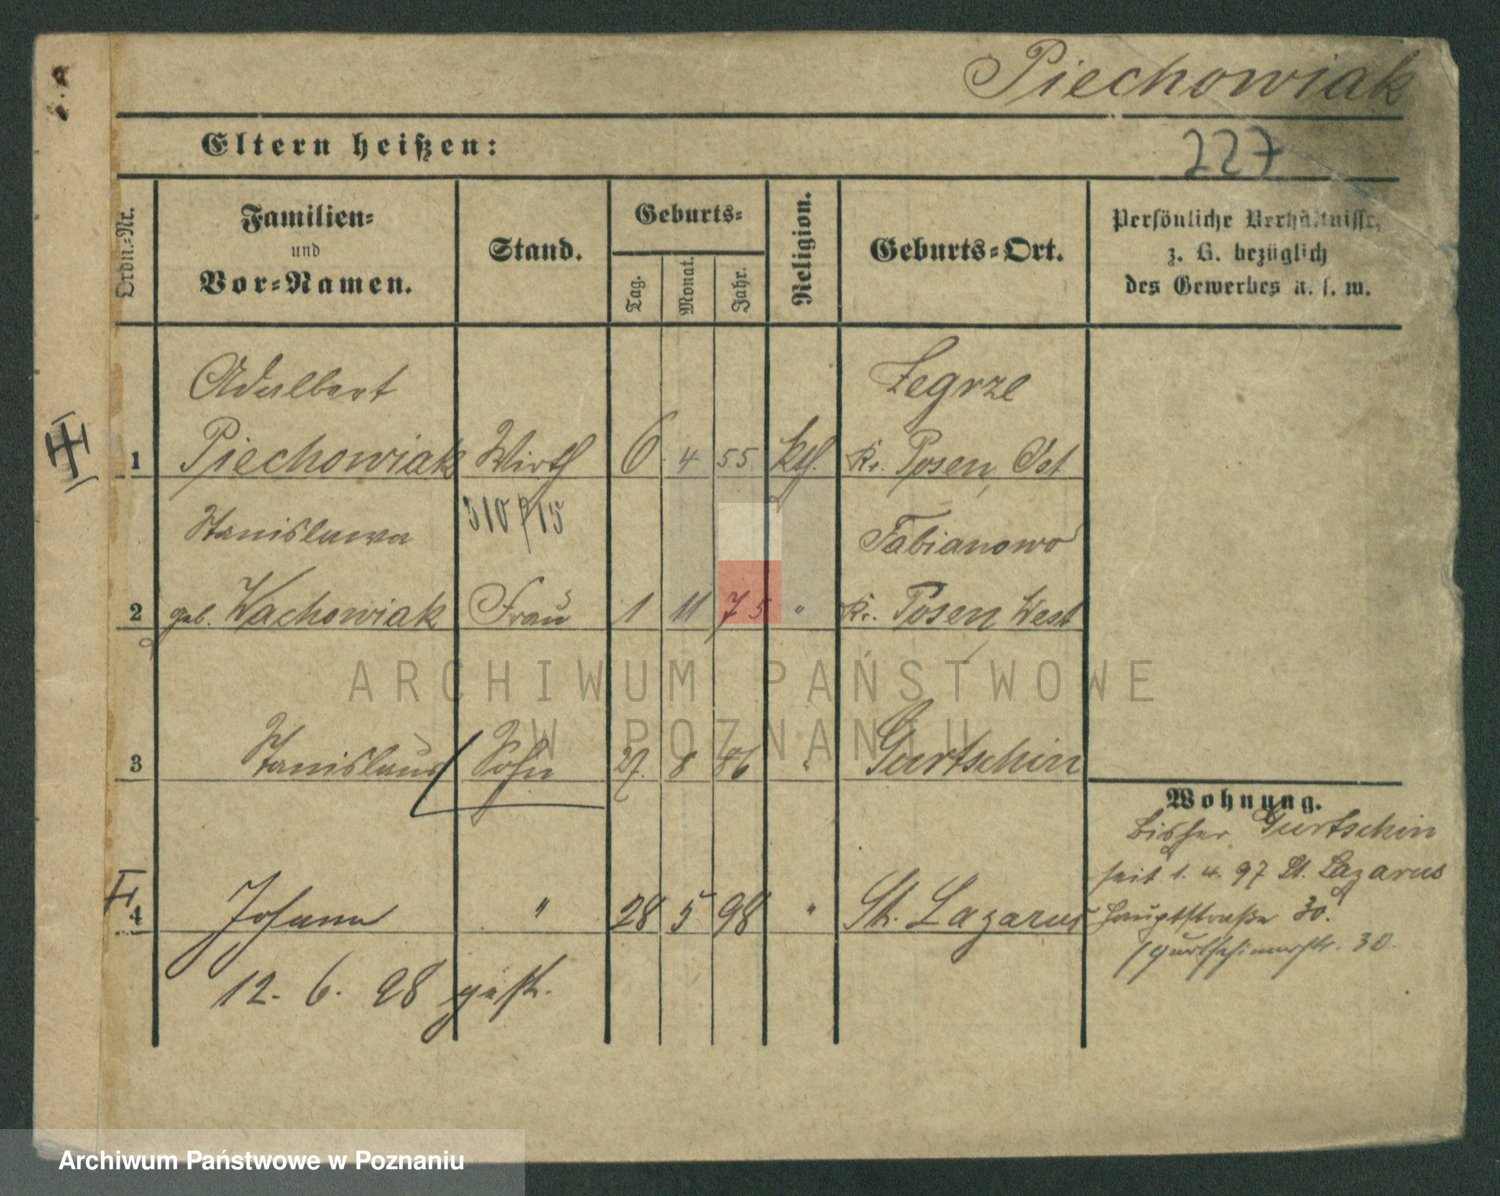 Piechowiak
Eltern heißen:
227
Ordn.-Nr.
Familien-
und
Vor-Namen.
Stand.
Geburts-
Tag.
Monat.
Jahr.
Religion.
Geburts-Ort.
Persönliche Verhältnisse,
z. B. bezüglich
des Gewerbes u. s. w.
Adalbert
Żegrze
1 Piechowiak Wirth 6. 4 55 kth. Kr. Posen, Ost
310/15
Stanislawa
Fabianowo
2 geb. Wachowiak Frau 1 11 75 " Kr. Posen West
3 Stanislaus Sohn 27. 8 86 " Gurtschin
4 Johann " 28 5 98 " St. Lazarus
12. 6. 98 gest.
Wohnung.
bisher Gurtschin
seit 1. 4. 97 St. Lazarus
Hauptstraße 30.
Gurtschinerstr. 30.
ARCHIWUM PAŃSTWOWE
W POZNANIU
Archiwum Państwowe w Poznaniu